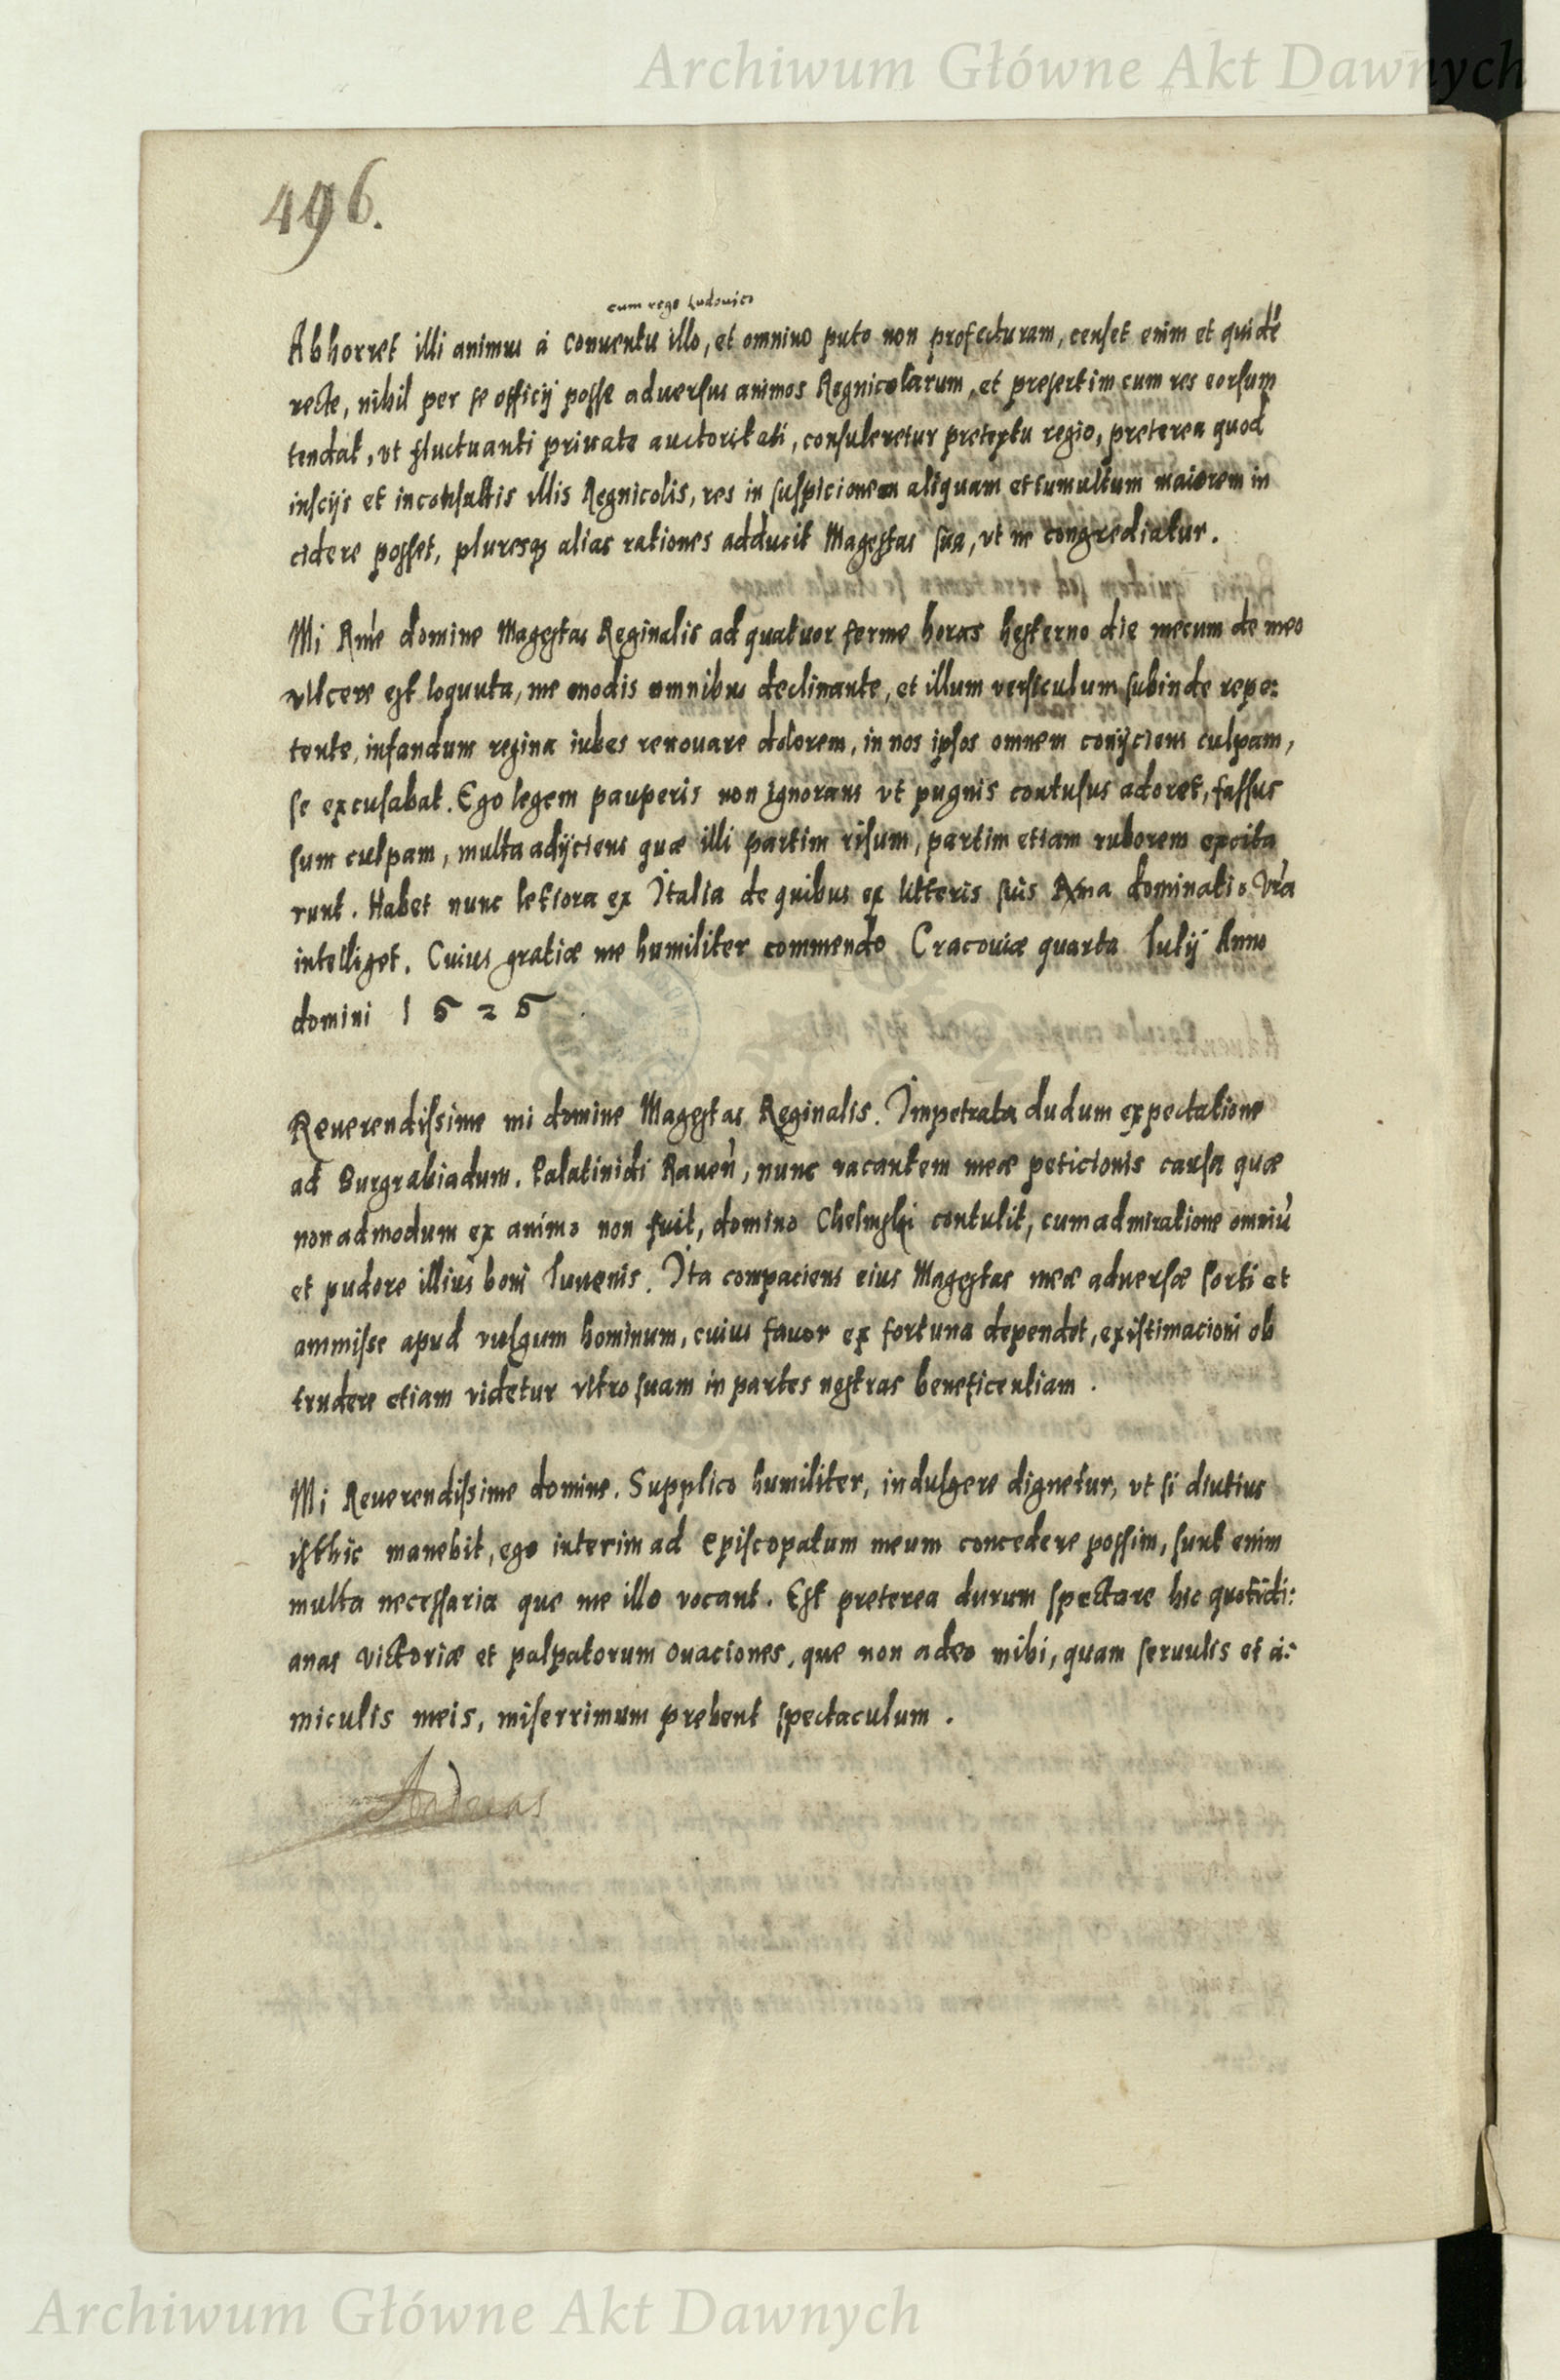 Archiwum Główne Akt Dawnych
496.
cum rege Ludouico
Abhorret illi animus à conuentu illo, et omnino puto non profecturam, censet enim et quidē
recte, nihil per se officij posse aduersus animos Regnicolarum, et presertim cum res eorsum
tendat, vt fluctuanti priuate auctoritati, consuleretur pretextu regio, preterea quod
inscijs et inconsultis illis Regnicolis, res in suspicionem aliquam et tumultum maiorem in
cidere posset, pluresq; alias rationes adducit Magestas sua, vt ne congrediatur.
Mi Rme domine Magestas Reginalis ad quatuor ferme horas hesterno die mecum de meo
vlcere est loquuta, me modis omnibus declinante, et illum versiculum subinde repe:
tente, infandum regina iubes renouare dolorem, in nos ipsos omnem conijciens culpam,
se excusabat. Ego legem pauperis non ignorans vt pugnis contusus adoret, fassus
sum culpam, multa adijciens quæ illi partim risum, partim etiam ruborem excita
runt. Habet nunc letiora ex Italia de quibus ex litteris suis Rma dominatio Vra
intelliget. Cuius gratiæ me humiliter commendo Cracouiæ quarta Iulij Anno
domini 1525
Reuerendissime mi domine Magestas Reginalis. Impetrata dudum expectatione
ad Burgrabiadum. Palatinidi Rauen̄, nunc vacantem meæ peticionis causa quæ
non admodum ex animo non fuit, domino Chelmski contulit, cum admiratione omniū
et pudore illius boni Iuuenis. Ita compaciens eius Magestas meæ aduersæ sorti et
ammisse apud vulgum hominum, cuius fauor ex fortuna dependet, existimacioni ob
trudere etiam videtur vltro suam in partes nostras beneficentiam.
Mi Reuerendissime domine. Supplico humiliter, indulgere dignetur, vt si diutius
isthic manebit, ego interim ad Episcopatum meum concedere possim, sunt enim
multa necessaria que me illo vocant. Est preterea durum spectare hic quotidi:
anas victoriæ et palpatorum ouaciones, que non adeo mihi, quam seruulis et a:
miculis meis, miserrimum prebent spectaculum.
Andreas
Archiwum Główne Akt Dawnych